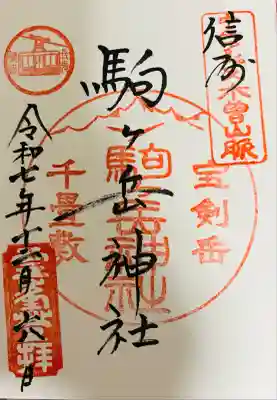 信州
木曽山脈
駒ヶ岳神社
宝剣岳
駒ヶ岳神社
千畳敷
令和七年十二月二八日